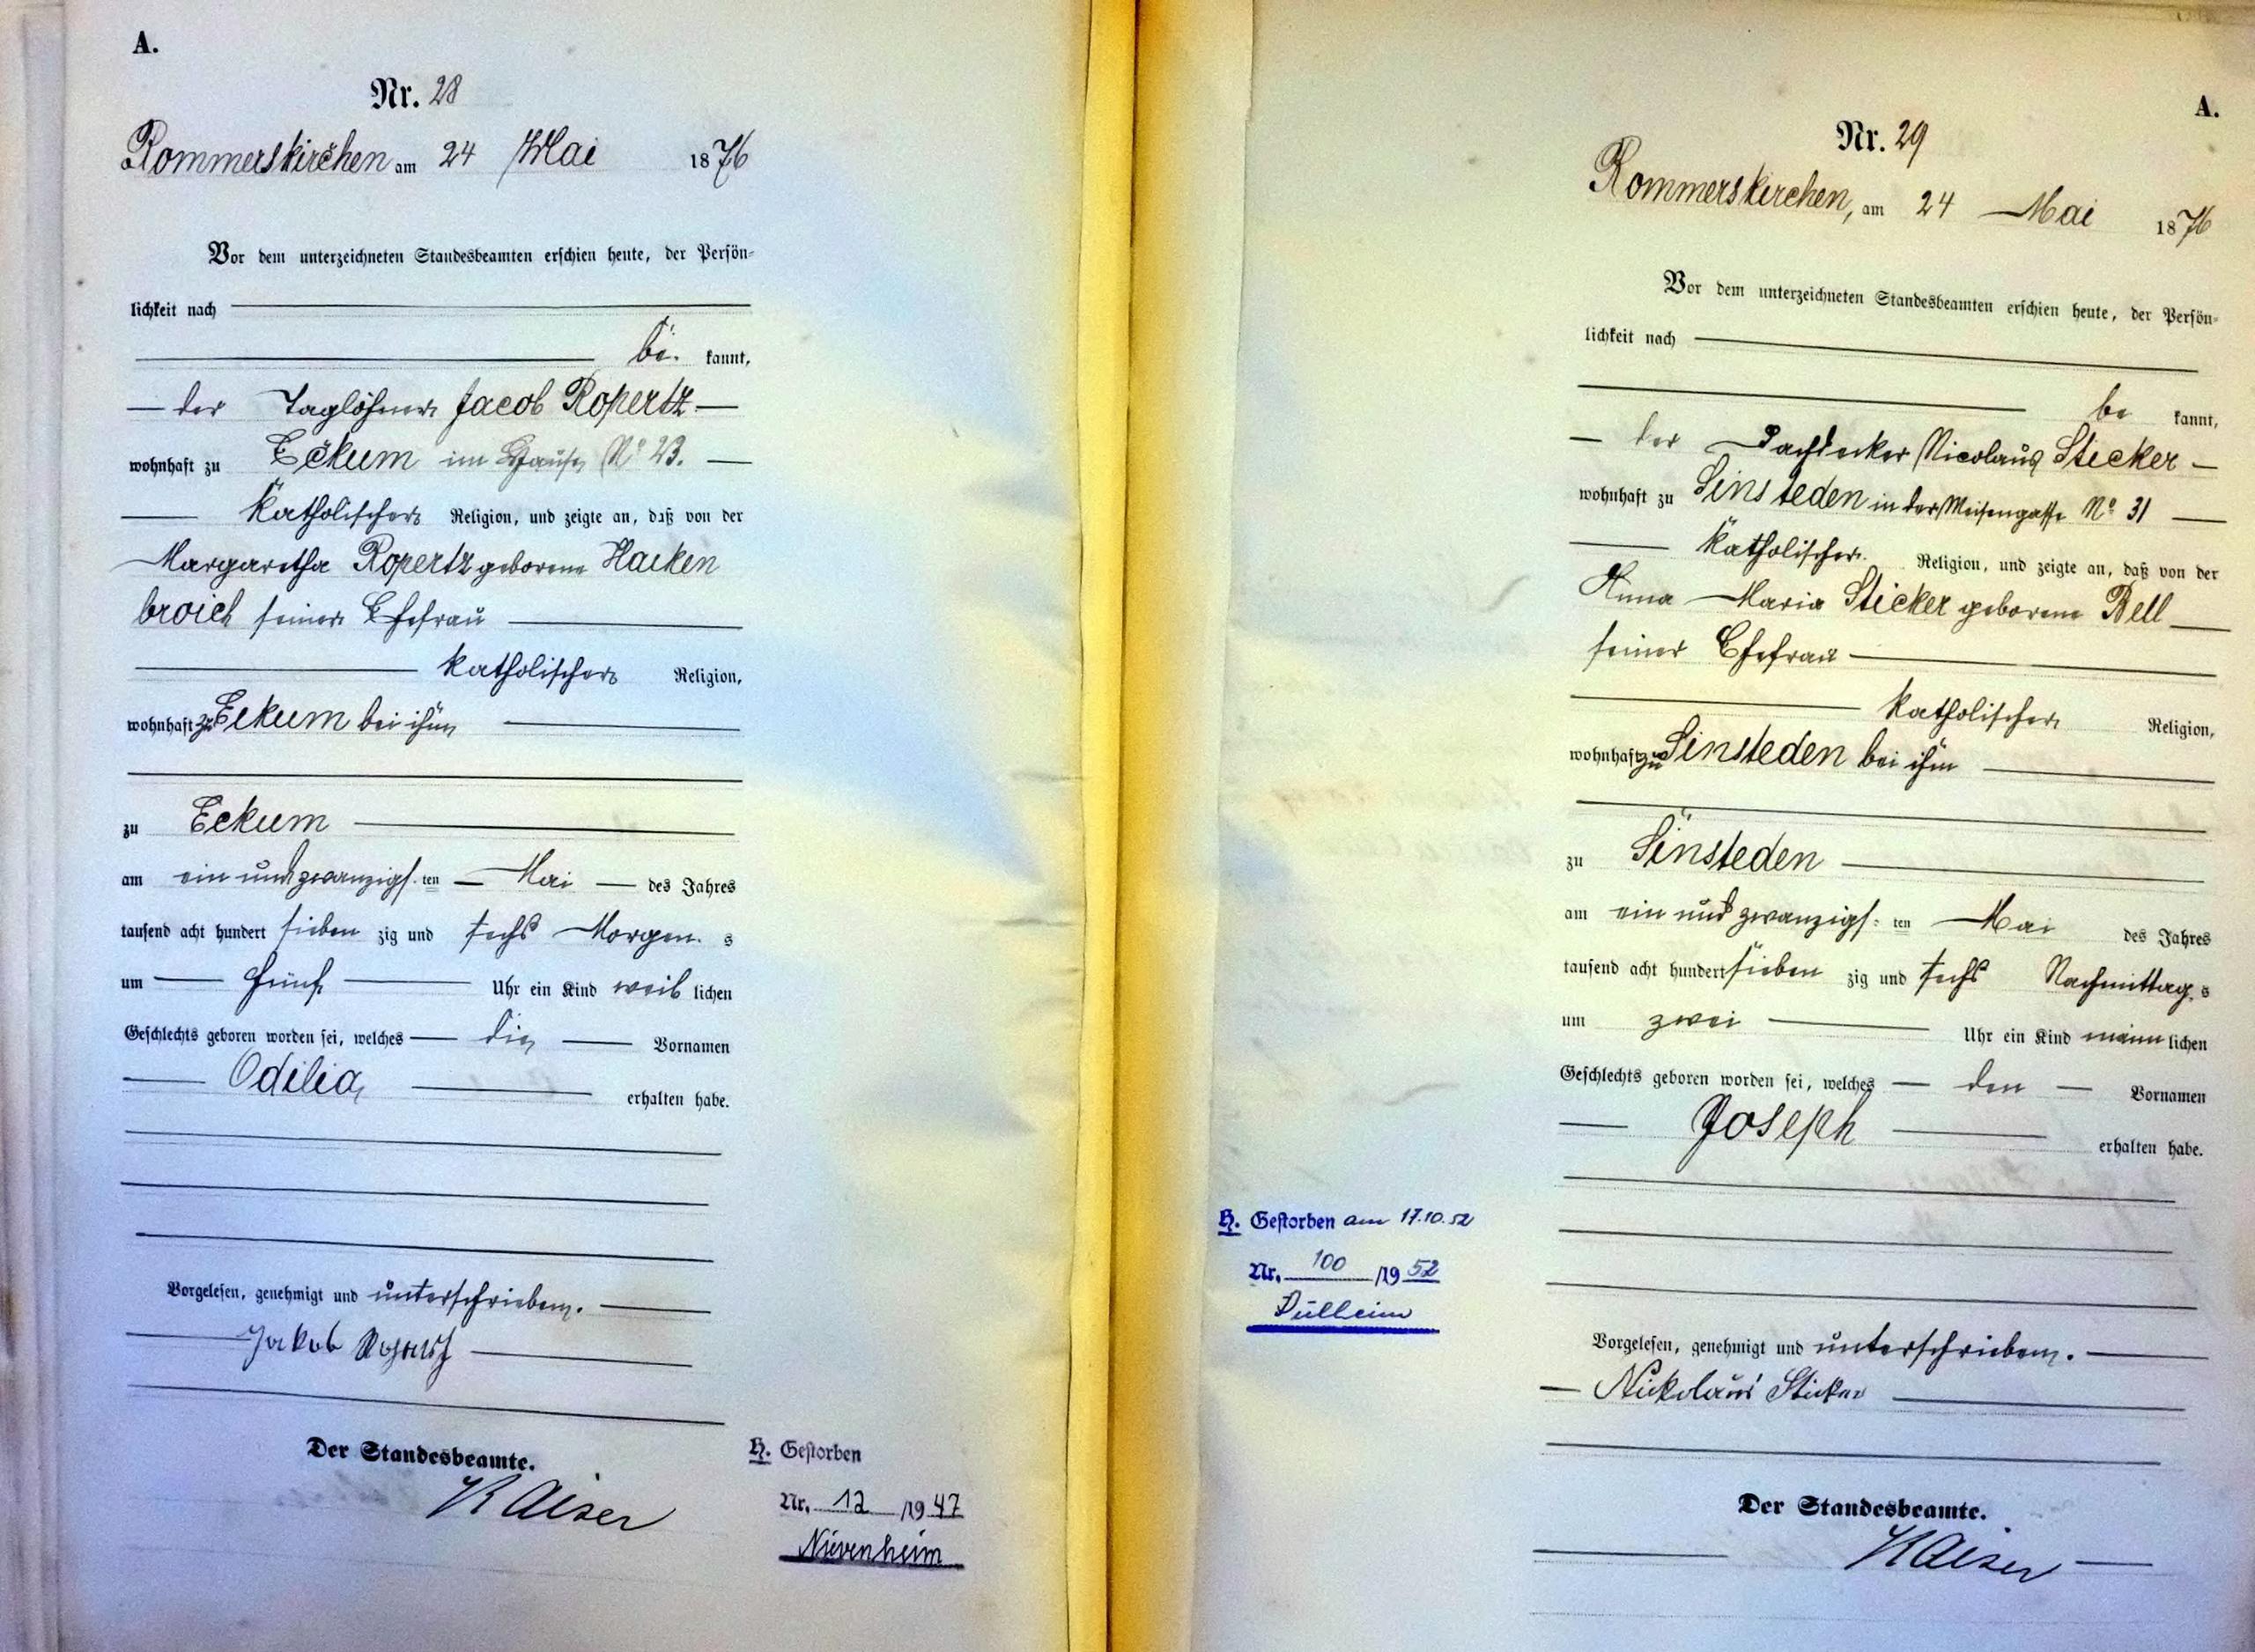 A.
Nr. 28
Rommerskirchen am 24 Mai 1876
Vor dem unterzeichneten Standesbeamten erschien heute, der Persön-
lichkeit nach
be kannt,
der Taglöhner Jacob Ropertz
wohnhaft zu Eckum im Hause No 23.
katholischer Religion, und zeigte an, daß von der
Margaretha Ropertz geborene Hacken
broich seiner Ehefrau
katholischer Religion,
wohnhaft zu Eckum bei ihm
zu Eckum
am ein und zwanzigs ten Mai des Jahres
tausend acht hundert sieben zig und sechs Morgens
um fünf Uhr ein Kind weib lichen
Geschlechts geboren worden sei, welches die Vornamen
Odilia erhalten habe.
Vorgelesen, genehmigt und unterschrieben.
Jakob Ropertz
Der Standesbeamte.
Kaiser
H. Gestorben
Nr. 12 /19 47
Nievenheim
A.
Nr. 29
Rommerskirchen, am 24 Mai 1876
Vor dem unterzeichneten Standesbeamten erschien heute, der Persön-
lichkeit nach
be kannt,
der Dachdecker Nicolaus Sticker
wohnhaft zu Sinsteden in der No 31
katholischer Religion, und zeigte an, daß von der
Anna Maria Sticker geborene Bell
seiner Ehefrau
katholischer Religion,
wohnhaft zu Sinsteden bei ihm
zu Sinsteden
am ein und zwanzigs ten Mai des Jahres
tausend acht hundert sieben zig und sechs Nachmittags
um zwei Uhr ein Kind männ lichen
Geschlechts geboren worden sei, welches den Vornamen
Joseph erhalten habe.
H. Gestorben am 17.10.52
Nr. 100 /19 52
Pulheim
Vorgelesen, genehmigt und unterschrieben.
Nikolaus Sticker
Der Standesbeamte.
Kaiser